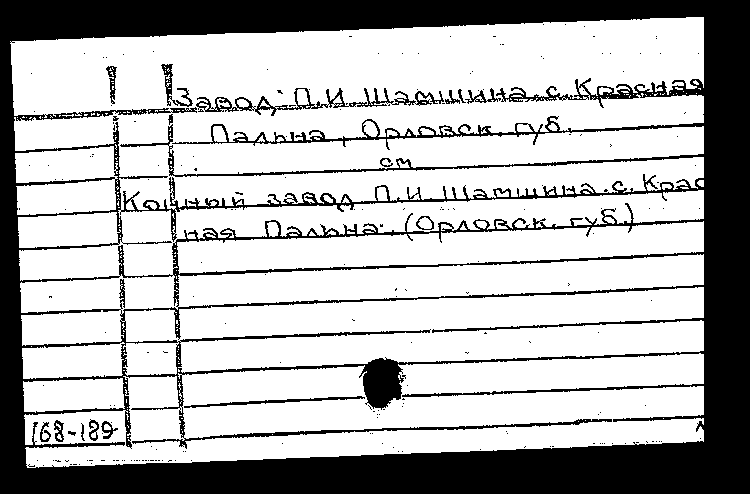 Завод П.И. Шамшина. с. Красная
Пальна, Орловск. губ.
см
Конный завод П.И. Шамшина. с. Крас
ная Пальна. (Орловск. губ.)
168-189